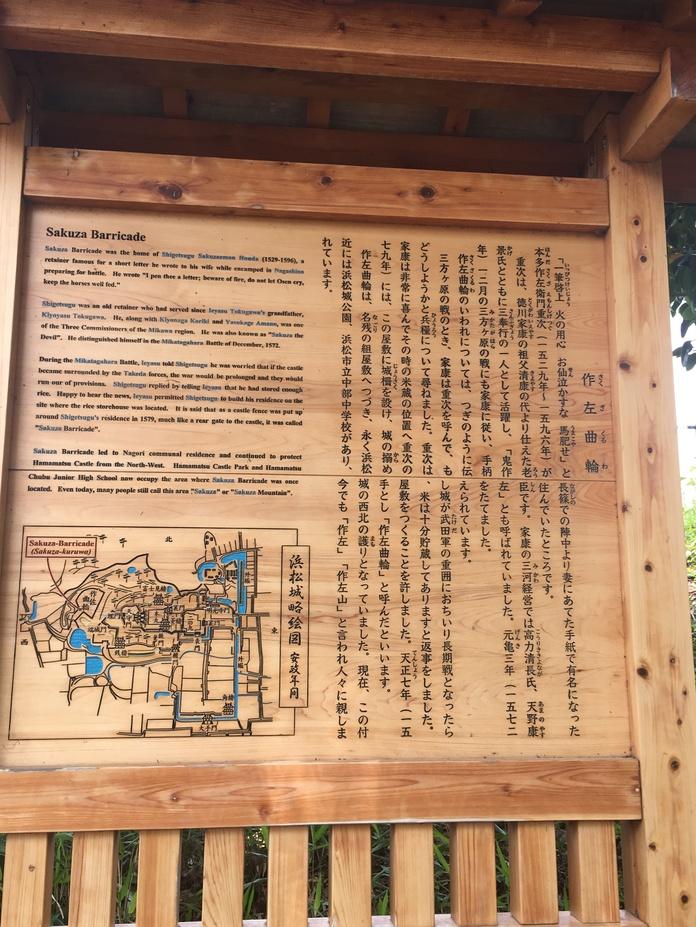 Sakuza Barricade
Sakuza Barricade was the home of Shigetsugu Sakuzaemon Honda (1529-1596), a
retainer famous for a short letter he wrote to his wife while encamped in Nagashino
preparing for battle. He wrote "I pen thee a letter; beware of fire, do not let Osen cry,
keep the horses well fed."
Shigetsugu was an old retainer who had served since Ieyasu Tokugawa's grandfather,
Kiyoyasu Tokugawa. He, along with Kiyonaga Koriki and Yasukage Amano, was one
of the Three Commissioners of the Mikawa region. He was also known as "Sakuza the
Devil". He distinguished himself in the Mikatagahara Battle of December, 1572.
During the Mikatagahara Battle, Ieyasu told Shigetsugu he was worried that if the castle
became surrounded by the Takeda forces, the war would be prolonged and they would
run our of provisions. Shigetsugu replied by telling Ieyasu that he had stored enough
rice. Happy to hear the news, Ieyasu permitted Shigetsugu to build his residence on the
site where the rice storehouse was located. It is said that as a castle fence was put up
around Shigetsugu's residence in 1579, much like a rear gate to the castle, it was called
"Sakuza Barricade".
Sakuza Barricade led to Nagori communal residence and continued to protect
Hamamatsu Castle from the North-West. Hamamatsu Castle Park and Hamamatsu
Chubu Junior High School now occupy the area where Sakuza Barricade was once
located. Even today, many people still call this area "Sakuza" or "Sakuza Mountain".
作左曲輪
「一筆啓上 火の用心 お仙泣かすな 馬肥せ」と長篠での陣中より妻にあてた手紙で有名になった
本多作左衛門重次(一五二九年〜一五九六年)が住んでいたところです。
重次は、徳川家康の祖父清康の代より仕えた老臣です。家康の三河経営では高力清長氏、天野康
景氏とともに三奉行の一人として活躍し、「鬼作左」とも呼ばれていました。元亀三年(一五七二
年)一二月の三方ヶ原の戦にも家康に従い、手柄をたてました。
作左曲輪のいわれについては、つぎのように伝えられています。
三方ヶ原の戦のとき、家康は重次を呼んで、もし城が武田軍の重囲におちいり長期戦となったら
どうしようかと兵糧について尋ねました。重次は、米は十分貯蔵してありますと返事をしました。
家康は非常に喜んでその時の米蔵の位置へ重次の屋敷をつくることを許しました。天正七年(一五
七九年)には、この屋敷に城櫓を設け、城の搦め手とし「作左曲輪」と呼んだといいます。
作左曲輪は、名残の組屋敷へつづき、永く浜松城の西北の護りとなっていました。現在、この付
近には浜松城公園、浜松市立中部中学校があり、今でも「作左」「作左山」と言われ人々に親しま
れています。
Sakuza-Barricade
(Sakuza-kuruwa)
浜松城略絵図 安政年間
北
東
西
大手門